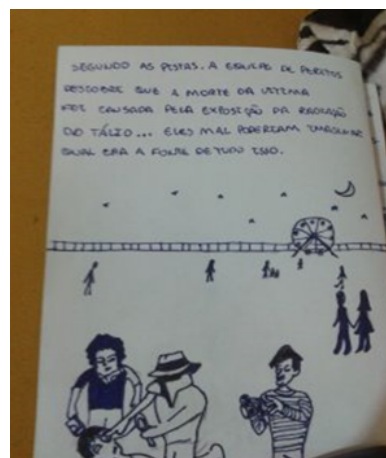 SEGUNDO AS PISTAS. A EQUIPE DE PERITOS
DESCOBRE QUE A MORTE DA VITIMA
FOI CAUSADA PELA EXPOSIÇÃO DA RADIAÇÃO
DO TÁLIO... ELES MAL PODERIAM IMAGINAR
QUAL ERA A FONTE DE TUDO ISSO.